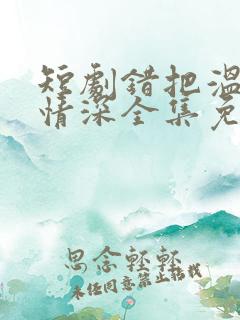 短劇錯把溫
情深全集免
思念輕輕
未经同意禁止搭载